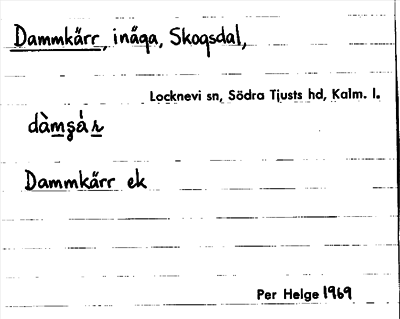 Dammkärr, inäga, Skogsdal,
Locknevi sn, Södra Tjusts hd, Kalm. l.
Dammkärr ek
Per Helge 1969